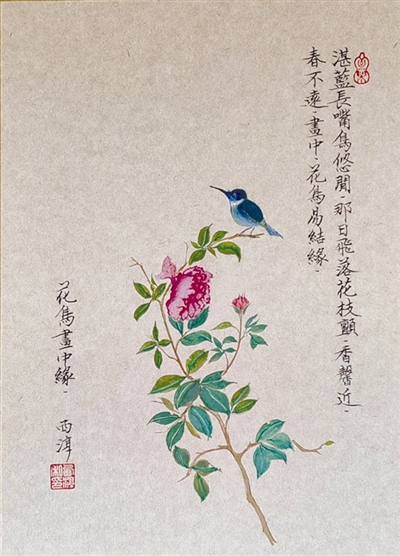 湛藍長嘴鳥悠閒.那日飛落花枝顫.香馨近.
春不遠.畫中.花鳥易結緣.
花鳥畫中緣.
西淳